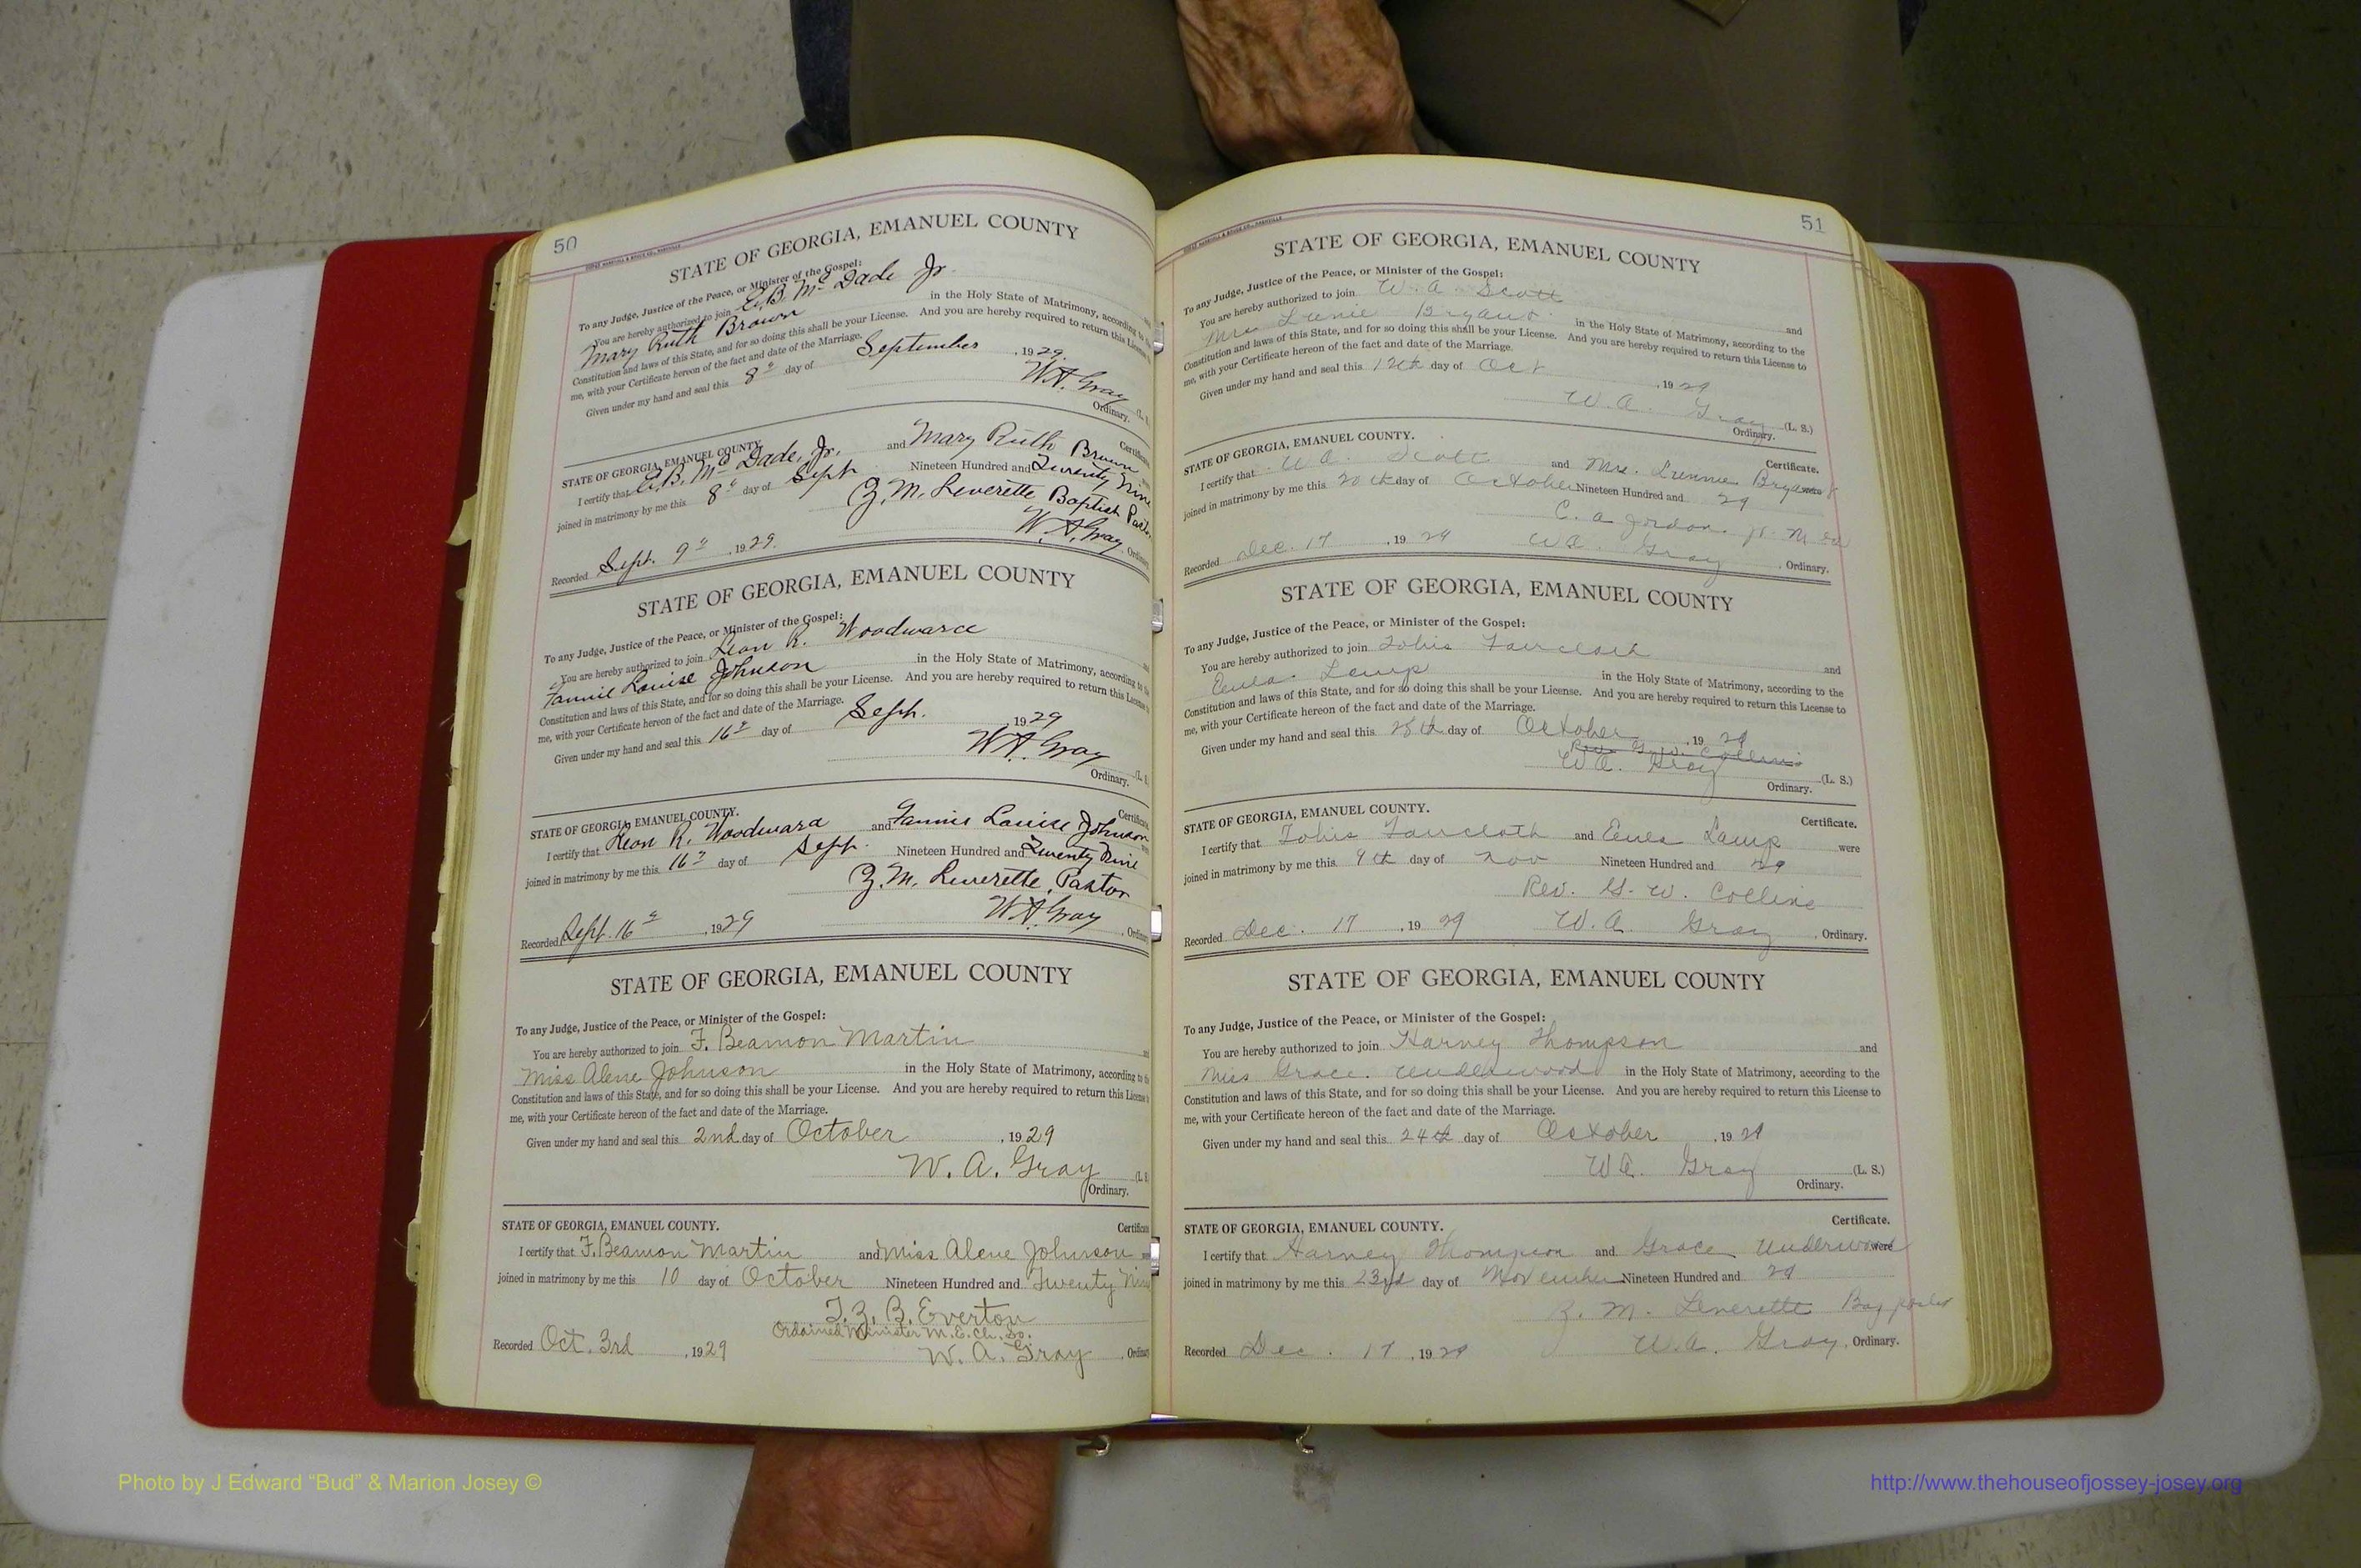 50
STATE OF GEORGIA, EMANUEL COUNTY
To any Judge, Justice of the Peace, or Minister of the Gospel:
You are hereby authorized to join E.B. McDade Jr.
Mary Ruth Brown in the Holy State of Matrimony, according to the
Constitution and laws of this State, and for so doing this shall be your License. And you are hereby required to return this License
me, with your Certificate hereon of the fact and date of the Marriage.
Given under my hand and seal this 8" day of September, 1929.
W.A. Gray (L. S
Ordinary.
STATE OF GEORGIA, EMANUEL COUNTY. Certificate
I certify that E.B. McDade, Jr. and Mary Ruth Brown
joined in matrimony by me this 8" day of Sept Nineteen Hundred and Twenty Nine
Z. M. Leverette Baptist Pastor
W.A. Gray, Ordinary
Recorded Sept. 9", 1929.
STATE OF GEORGIA, EMANUEL COUNTY
To any Judge, Justice of the Peace, or Minister of the Gospel:
You are hereby authorized to join Leon R. Woodward
Fannie Louise Johnson in the Holy State of Matrimony, according to the
Constitution and laws of this State, and for so doing this shall be your License. And you are hereby required to return this License
me, with your Certificate hereon of the fact and date of the Marriage.
Given under my hand and seal this 16" day of Sept., 1929
W.A. Gray (L. S
Ordinary.
STATE OF GEORGIA, EMANUEL COUNTY. Certificate
I certify that Leon R. Woodward and Fannie Louise Johnson were
joined in matrimony by me this 16" day of Sept. Nineteen Hundred and Twenty Nine
Z. M. Leverette, Pastor
W.A. Gray, Ordinary
Recorded Sept. 16", 1929
STATE OF GEORGIA, EMANUEL COUNTY
To any Judge, Justice of the Peace, or Minister of the Gospel:
You are hereby authorized to join F. Beamon Martin and
Miss Alene Johnson in the Holy State of Matrimony, according to the
Constitution and laws of this State, and for so doing this shall be your License. And you are hereby required to return this License
me, with your Certificate hereon of the fact and date of the Marriage.
Given under my hand and seal this 2nd day of October, 1929
W. A. Gray (L. S
Ordinary.
STATE OF GEORGIA, EMANUEL COUNTY. Certificate
I certify that F. Beamon Martin and Miss Alene Johnson
joined in matrimony by me this 10 day of October Nineteen Hundred and Twenty Nine
T. Z. B. Everton
Ordained Minister M.E. Ch. So.
Recorded Oct. 3rd, 1929 W. A. Gray, Ordinary
51
STATE OF GEORGIA, EMANUEL COUNTY
To any Judge, Justice of the Peace, or Minister of the Gospel:
You are hereby authorized to join W. A Scott and
Mrs Bryant in the Holy State of Matrimony, according to the
Constitution and laws of this State, and for so doing this shall be your License. And you are hereby required to return this License to
me, with your Certificate hereon of the fact and date of the Marriage.
Given under my hand and seal this 12th day of Oct, 1929
W. A. Gray (L. S.)
Ordinary.
STATE OF GEORGIA, EMANUEL COUNTY. Certificate.
I certify that W. A. Scott and Mrs. Bryant were
joined in matrimony by me this 20th day of October Nineteen Hundred and 29
C. A Jordan
Recorded Dec. 17, 1929 W. A. Gray, Ordinary.
STATE OF GEORGIA, EMANUEL COUNTY
To any Judge, Justice of the Peace, or Minister of the Gospel:
You are hereby authorized to join Faircloth and
Eula Lamp in the Holy State of Matrimony, according to the
Constitution and laws of this State, and for so doing this shall be your License. And you are hereby required to return this License to
me, with your Certificate hereon of the fact and date of the Marriage.
Given under my hand and seal this 28th day of October, 1929
Rev. G. W. Collins
W. A. Gray (L. S.)
Ordinary.
STATE OF GEORGIA, EMANUEL COUNTY. Certificate.
I certify that Faircloth and Eula Lamp were
joined in matrimony by me this 9th day of Nov Nineteen Hundred and 29
Rev. G. W. Collins
Recorded Dec. 17, 1929 W. A. Gray, Ordinary.
STATE OF GEORGIA, EMANUEL COUNTY
To any Judge, Justice of the Peace, or Minister of the Gospel:
You are hereby authorized to join Harvey Thompson and
Miss Grace Underwood in the Holy State of Matrimony, according to the
Constitution and laws of this State, and for so doing this shall be your License. And you are hereby required to return this License to
me, with your Certificate hereon of the fact and date of the Marriage.
Given under my hand and seal this 24th day of October, 1929
W. A. Gray (L. S.)
Ordinary.
STATE OF GEORGIA, EMANUEL COUNTY. Certificate.
I certify that Harvey Thompson and Grace Underwood were
joined in matrimony by me this 23rd day of November Nineteen Hundred and 29
Z. M. Leverette
Recorded Dec. 17, 1929 W. A. Gray, Ordinary.
Photo by J Edward “Bud” & Marion Josey ©
http://www.thehouseofjossey-josey.org